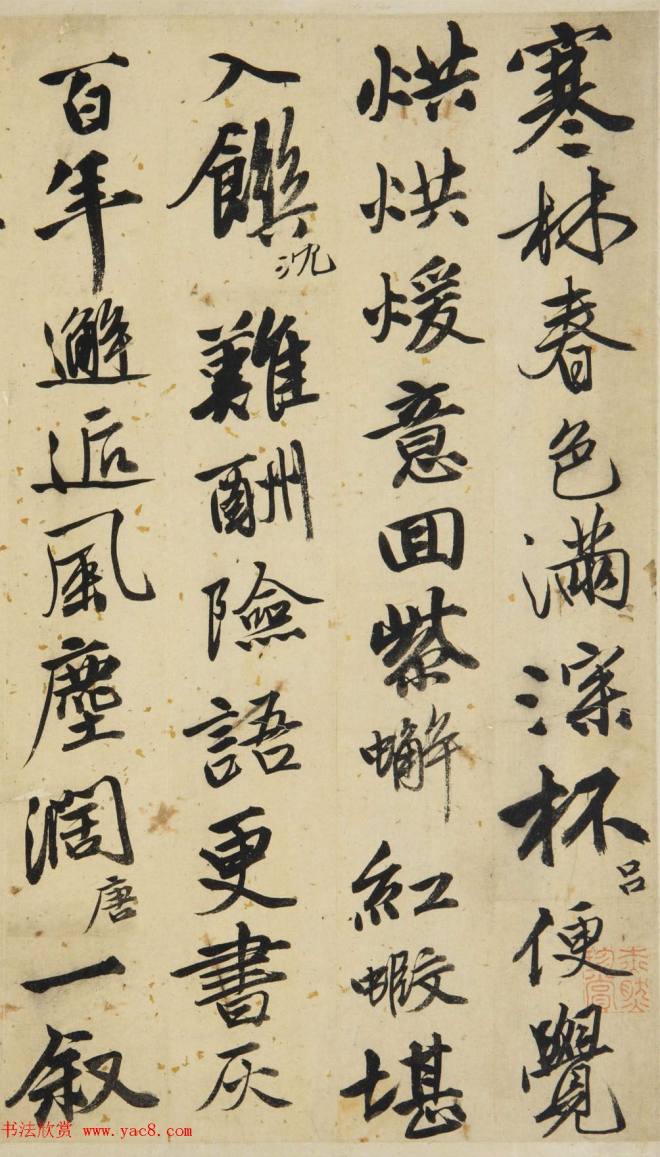 寒林春色滿深杯吕便覺
烘烘煖意回紫蠏紅蝦堪
入饌沈難酬險語更書灰
百年邂逅風塵濶唐一叙
书法欣赏 www.yac8.com